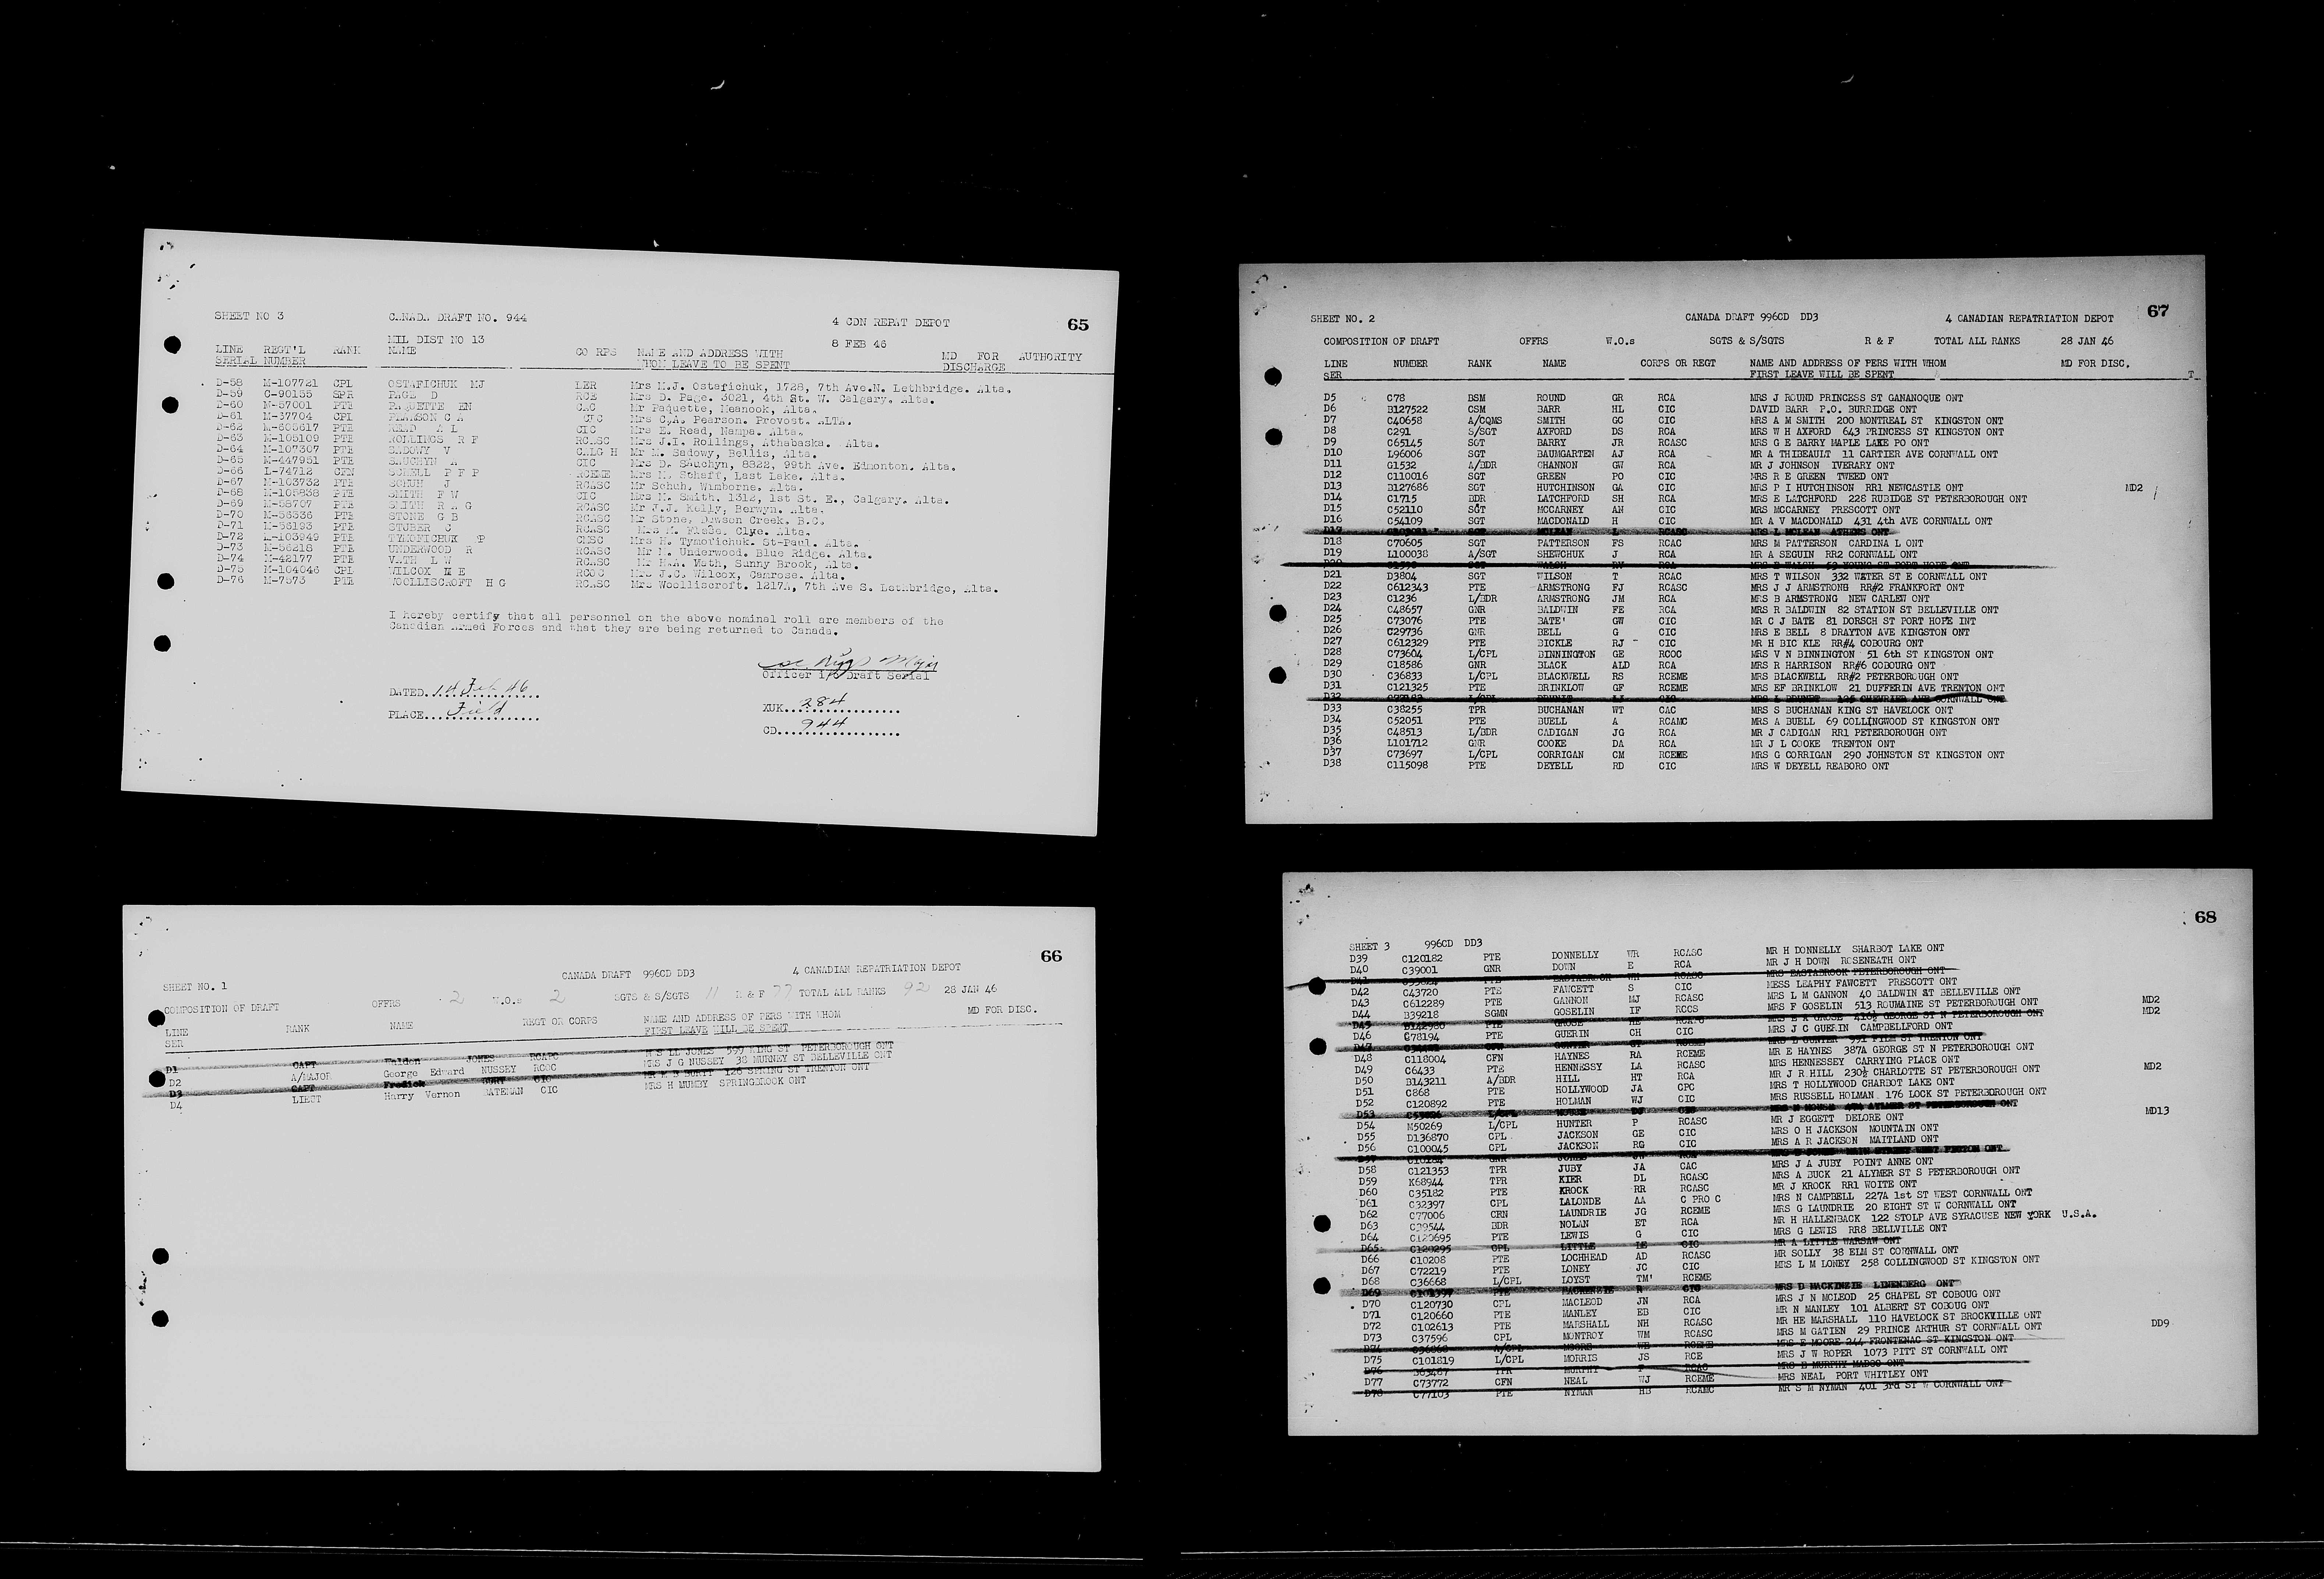 65
SHEET NO 3 CANADA DRAFT NO. 944 4 CDN REPAT DEPOT
MIL DIST NO 13 8 FEB 46
LINE REGT'L RANK NAME CO RPS NAME AND ADDRESS WITH MD FOR AUTHORITY
SERIAL NUMBER WHOM LEAVE TO BE SPENT DISCHARGE
D-58 M-107721 CPL OSTAFICHUK MJ LER Mrs M.J. Ostafichuk, 1728, 7th Ave.N. Lethbridge. Alta.
D-59 C-90155 SPR PAGE D RCE Mrs D. Page. 3021, 4th St. W. Calgary. Alta.
D-60 M-57001 PTE PAQUETTE EN CAC Mr Paquette, Meanook, Alta.
D-61 M-37704 CPL PEARSON C A CFC Mrs C.A. Pearson. Provost. ALTA.
D-62 PTE READ A L CIC Mrs E. Read, Nampa. Alta.
D-63 M-105109 PTE ROLLINGS R F RCASC Mrs J.I. Rollings, Athabaska. Alta.
D-64 M-107307 PTE SADOWY V CALG H Mr M. Sadowy, Bellis, Alta.
D-65 M-447951 PTE SAUCHYN A CIC Mrs D. Sauchyn, 8822, 99th Ave. Edmonton. Alta.
D-66 L-74712 CFN SCHELL P F P RCEME Mrs M. Schaff, Last Lake. Alta.
D-67 M-103732 PTE SCHUH J RCASC Mr Schuh, Wimborne. Alta.
D-68 M-105838 PTE SMITH F W CIC Mrs M. Smith, 1312, 1st St. E., Calgary. Alta.
D-69 M-58707 PTE SMITH R A G RCASC Mr J.J. Kelly, Berwyn. Alta.
D-70 M-56336 PTE STONE G B RCASC Mr Stone, Dawson Creek. B.C.
D-71 M-56193 PTE STUBER C RCASC Mrs Clye. Alta.
D-72 M-103949 PTE TYMOFICHUK P Mrs H. Tymofichuk. St-Paul. Alta.
D-73 M-56218 PTE UNDERWOOD R RCASC Mr M. Underwood. Blue Ridge. Alta.
D-74 M-42177 PTE VATH L W RCASC Mr M.A. Vath, Sunny Brook, Alta.
D-75 M-104046 CPL WILCOX M E RCOC Mrs J.C. Wilcox, Camrose. Alta.
D-76 M-7573 PTE WOOLLISCROFT H G RCASC Mrs Woolliscroft. 1217A, 7th Ave S. Lethbridge, Alta.
I hereby certify that all personnel on the above nominal roll are members of the
Canadian Armed Forces and what they are being returned to Canada.
Riggs Major
Officer I/C Draft Serial
DATED. 14 Feb 46
XUK. 284
PLACE. Field
CD. 944
66
CANADA DRAFT 996CD DD3 4 CANADIAN REPATRIATION DEPOT
SHEET NO. 1
COMPOSITION OF DRAFT OFFRS 2 W.O.s 2 SGTS & S/SGTS 11 R & F 77 TOTAL ALL RANKS 92 28 JAN 46
LINE RANK NAME REGT OR CORPS NAME AND ADDRESS OF PERS WITH WHOM MD FOR DISC.
SER FIRST LEAVE WILL BE SPENT
D1 CAPT Weldon JONES RCAPC JONES 599 KING ST PETERBOROUGH ONT
D2 A/MAJOR George Edward NUSSEY RCOC MRS J G NUSSEY 38 MURNEY ST BELLEVILLE ONT
D3 CAPT CIC 126 SPRING ST TRENTON ONT
D4 LIEUT Harry Vernon BATEMAN CIC MRS H MUMBY SPRINGBROOK ONT
67
SHEET NO. 2 CANADA DRAFT 996CD DD3 4 CANADIAN REPATRIATION DEPOT
COMPOSITION OF DRAFT OFFRS W.O.s SGTS & S/SGTS R & F TOTAL ALL RANKS 28 JAN 46
LINE NUMBER RANK NAME CORPS OR REGT NAME AND ADDRESS OF PERS WITH WHOM MD FOR DISC.
SER FIRST LEAVE WILL BE SPENT T
D5 C78 BSM ROUND GR RCA MRS J ROUND PRINCESS ST GANANOQUE ONT
D6 B127522 CSM BARR HL CIC DAVID BARR P.O. BURRIDGE ONT
D7 C40658 A/CQMS SMITH GC CIC MRS A M SMITH 200 MONTREAL ST KINGSTON ONT
D8 C291 S/SGT AXFORD DS RCA MRS W H AXFORD 643 PRINCESS ST KINGSTON ONT
D9 C65145 SGT BARRY JR RCASC MRS G E BARRY MAPLE LAKE PO ONT
D10 L96006 SGT BAUMGARTEN AJ RCA MR A THIBEAULT 11 CARTIER AVE CORNWALL ONT
D11 G1532 A/BDR CHANNON GW RCA MR J JOHNSON IVERARY ONT
D12 C110016 SGT GREEN PO CIC MRS R E GREEN TWEED ONT
D13 B127686 SGT HUTCHINSON GA CIC MRS P I HUTCHINSON RR1 NEWCASTLE ONT MD2
D14 C1715 BDR LATCHFORD SH RCA MRS E LATCHFORD 228 RUBIDGE ST PETERBOROUGH ONT
D15 C52110 SGT MCCARNEY AN CIC MRS MCCARNEY PRESCOTT ONT
D16 C54109 SGT MACDONALD H CIC MR A V MACDONALD 431 4th AVE CORNWALL ONT
D17 SGT MCLEAN L RCASC MRS L MCLEAN ATHENS ONT
D18 C70605 SGT PATTERSON FS RCAC MRS M PATTERSON CARDINA L ONT
D19 L100038 A/SGT SHEWCHUK J RCA MR A SEGUIN RR2 CORNWALL ONT
D20 SGT WALSH RCA WALSH 59 YOUNG ST PORT HOPE ONT
D21 D3804 SGT WILSON T RCAC MRS T WILSON 332 WATER ST E CORNWALL ONT
D22 C612343 PTE ARMSTRONG FJ RCASC MRS J J ARMSTRONG RR#2 FRANKFORT ONT
D23 C1236 L/BDR ARMSTRONG JM RCA MRS B ARMSTRONG NEW CARLEW ONT
D24 C48657 GNR BALDWIN FE RCA MRS R BALDWIN 82 STATION ST BELLEVILLE ONT
D25 C73076 PTE BATE' GW CIC MR C J BATE 81 DORSCH ST PORT HOPE INT
D26 C29736 GNR BELL G CIC MRS E BELL 8 DRAYTON AVE KINGSTON ONT
D27 C612329 PTE BICKLE RJ CIC MR H BIC KLE RR#4 COBOURG ONT
D28 C73604 L/CPL BINNINGTON GE RCOC MRS V N BINNINGTON 51 6th ST KINGSTON ONT
D29 C18586 GNR BLACK ALD RCA MRS R HARRISON RR#6 COBOURG ONT
D30 C36833 L/CPL BLACKWELL RS RCEME MRS BLACKWELL RR#2 PETERBOROUGH ONT
D31 C121325 PTE BRINKLOW GF RCEME MRS EF BRINKLOW 21 DUFFERIN AVE TRENTON ONT
D32 L/CPL CIC CORNWALL ONT
D33 C38255 TPR BUCHANAN WT CAC MRS S BUCHANAN KING ST HAVELOCK ONT
D34 C52051 PTE BUELL A RCAMC MRS A BUELL 69 COLLINGWOOD ST KINGSTON ONT
D35 C48513 L/BDR CADIGAN JG RCA MR J CADIGAN RR1 PETERBOROUGH ONT
D36 L101712 GNR COOKE DA RCA MR J L COOKE TRENTON ONT
D37 C73697 L/CPL CORRIGAN CM RCEME MRS G CORRIGAN 290 JOHNSTON ST KINGSTON ONT
D38 C115098 PTE DEYELL RD CIC MRS W DEYELL REABORO ONT
68
SHEET 3 996CD DD3
D39 C120182 PTE DONNELLY WR RCASC MR H DONNELLY SHARBOT LAKE ONT
D40 C39001 GNR DOWN E RCA MR J H DOWN ROSENEATH ONT
D41 PTE EASTABROOK WH RCASC MRS EASTABROOK PETERBOROUGH ONT
D42 C43720 PTE FAWCETT S CIC MESS LEAPHY FAWCETT PRESCOTT ONT
D43 C612289 PTE GANNON MJ RCASC MRS L M GANNON 40 BALDWIN ST BELLEVILLE ONT
D44 B39218 SGMN GOSELIN IF RCCS MRS F GOSELIN 513 ROUMAINE ST PETERBOROUGH ONT MD2
D45 B142980 PTE GROSE HE MRS E K GROSE 416½ GEORGE ST N PETERBOROUGH ONT MD2
D46 C78194 PTE GUERIN CH CIC MRS J C GUERIN CAMPBELLFORD ONT
D47 CFN GUNTER RCEME MRS D GUNTER ST TRENTON ONT
D48 C118004 CFN HAYNES RA RCEME MR E HAYNES 387A GEORGE ST N PETERBOROUGH ONT
D49 C6433 PTE HENNESSY LA RCASC MRS HENNESSEY CARRYING PLACE ONT
D50 B143211 A/BDR HILL HT RCA MR J R HILL 230½ CHARLOTTE ST PETERBOROUGH ONT MD2
D51 C868 PTE HOLLYWOOD JA CPC MRS T HOLLYWOOD CHARBOT LAKE ONT
D52 C120892 PTE HOLMAN WJ CIC MRS RUSSELL HOLMAN 176 LOCK ST PETERBOROUGH ONT
D53 L/CPL CIC MRS N HOUSE 474 AYLMER ST PETERBOROUGH ONT
D54 M50269 L/CPL HUNTER P RCASC MR J EGGETT DELORE ONT MD13
D55 D136870 CPL JACKSON GE CIC MRS O H JACKSON MOUNTAIN ONT
D56 C100045 CPL JACKSON RG CIC MRS A R JACKSON MAITLAND ONT
D57 GNR JONES RCA JONES MAIN STREET WEST PICTON ONT
D58 C121353 TPR JUBY JA CAC MRS J A JUBY POINT ANNE ONT
D59 K68944 TPR KIER DL RCASC MRS A BUCK 21 ALYMER ST S PETERBOROUGH ONT
D60 C35182 PTE KROCK RR RCASC MR J KROCK RR1 WOITE ONT
D61 C32397 CPL LALONDE AA C PRO C MRS N CAMPBELL 227A 1st ST WEST CORNWALL ONT
D62 C77006 CRN LAUNDRIE JG RCEME MRS G LAUNDRIE 20 EIGHT ST W CORNWALL ONT
D63 C39544 BDR NOLAN ET RCA MR H HALLENBACK 122 STOLP AVE SYRACUSE NEW YORK U.S.A.
D64 C120695 PTE LEWIS G CIC MRS G LEWIS RR8 BELLVILLE ONT
D65 C120295 CPL LITTLE LE CIC MR A LITTLE WARSAW ONT
D66 C10208 PTE LOCHHEAD AD RCASC MR SOLLY 38 ELM ST CORNWALL ONT
D67 C72219 PTE LONEY JC CIC MRS L M LONEY 258 COLLINGWOOD ST KINGSTON ONT
D68 C36668 L/CPL LOYST TM' RCEME
D69 C101397 PTE MACKENZIE R CIC MRS D MACKINZIE LINENBERG ONT
D70 C120730 CPL MACLEOD JN RCA MRS J N MCLEOD 25 CHAPEL ST COBOUG ONT
D71 C120660 PTE MANLEY EB CIC MR N MANLEY 101 ALBERT ST COBOUG ONT
D72 C102613 PTE MARSHALL NH RCASC MR HE MARSHALL 110 HAVELOCK ST BROCKVILLE ONT
D73 C37596 CPL MONTROY WM RCASC MRS M GATIEN 29 PRINCE ARTHUR ST CORNWALL ONT DD9
D74 C36868 A/CPL MOORE WE RCEME MRS E MOORE 244 FRONTENAC ST KINGSTON ONT
D75 C101819 L/CPL MORRIS JS RCE MRS J W ROPER 1073 PITT ST CORNWALL ONT
D76 B63467 TPR MURPHY F RCAC MRS B MURPHY MADOC ONT
D77 C73772 CFN NEAL WJ RCEME MRS NEAL PORT WHITLEY ONT
D78 C77103 PTE NYMAN HB RCAMC MR S M NYMAN 401 3rd ST W CORNWALL ONT